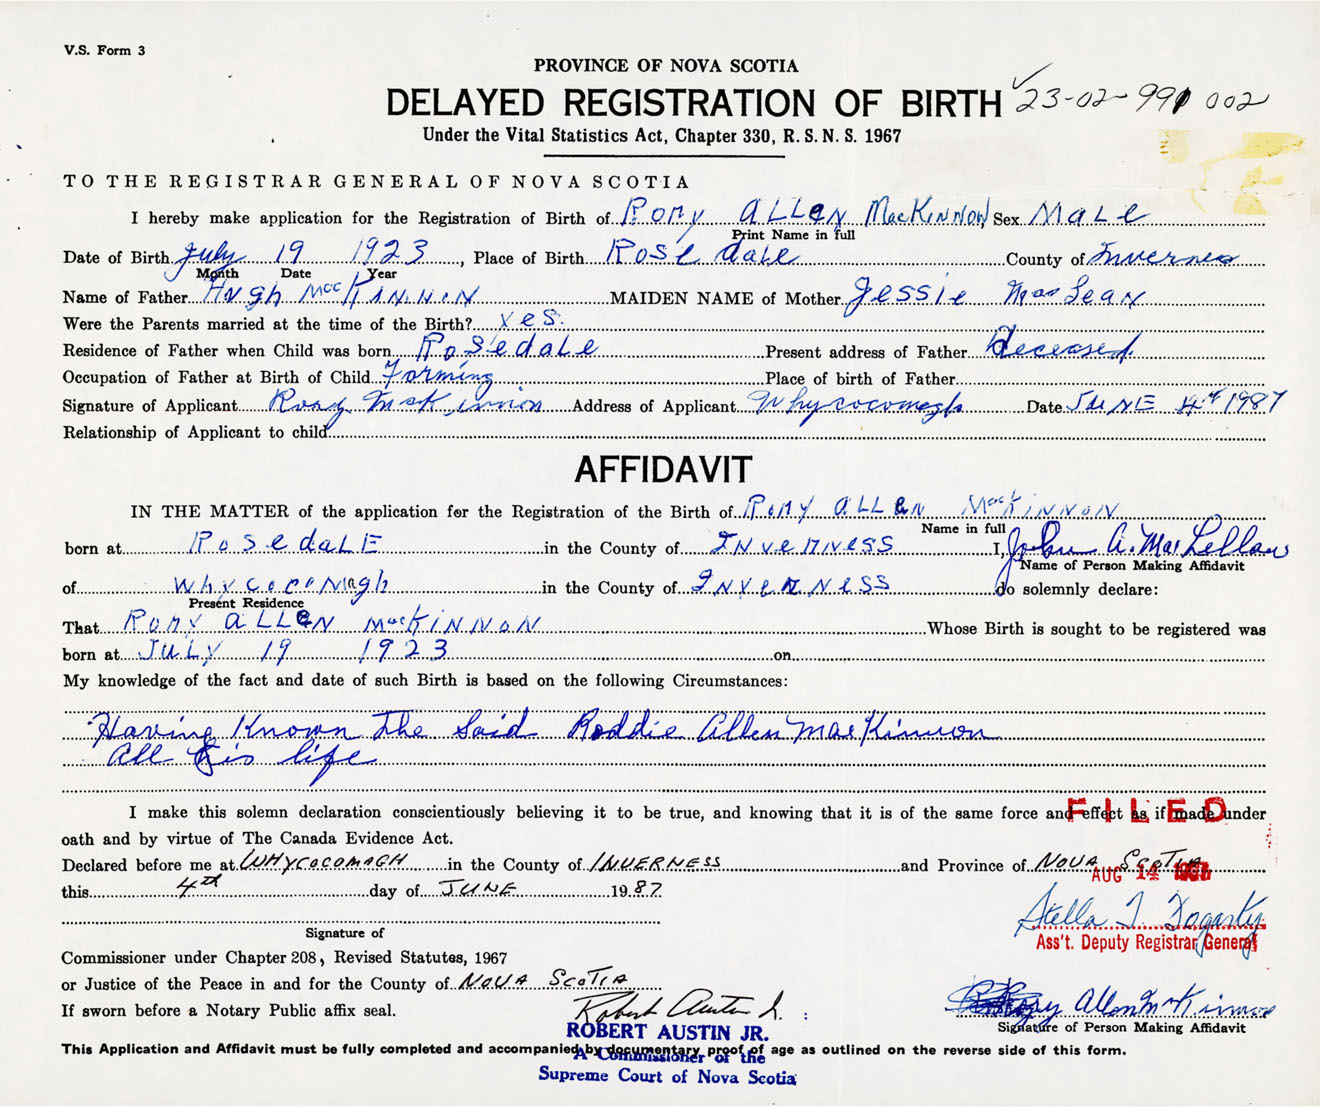 V.S. Form 3
PROVINCE OF NOVA SCOTIA
DELAYED REGISTRATION OF BIRTH 23-02-991 002
Under the Vital Statistics Act, Chapter 330, R.S.N.S. 1967
TO THE REGISTRAR GENERAL OF NOVA SCOTIA
I hereby make application for the Registration of Birth of Rory ALLEN MacKINNON, Sex MALE
Print Name in full
Date of Birth July 19 1923, Place of Birth ROSE dale County of Inverness
Month Date Year
Name of Father Hugh MacKINNON MAIDEN NAME of Mother Jessie MacLean
Were the Parents married at the time of the Birth? yes.
Residence of Father when Child was born Rosedale Present address of Father Deceased.
Occupation of Father at Birth of Child Farming Place of birth of Father
Signature of Applicant Rory McKinnon Address of Applicant Whycocomagh Date JUNE 4th 1987
Relationship of Applicant to child
AFFIDAVIT
IN THE MATTER of the application for the Registration of the Birth of RORY ALLEN MacKINNON
Name in full
born at ROSEdALE in the County of INVERNESS I, John A. MacLellan
Name of Person Making Affidavit
of WhycocoMagh in the County of INVERNESS do solemnly declare:
Present Residence
That RORY ALLEN MacKINNON Whose Birth is sought to be registered was
born at JULY 19 1923 on
My knowledge of the fact and date of such Birth is based on the following Circumstances:
Having Known The Said Roddie Allen MacKinnon
All his life
I make this solemn declaration conscientiously believing it to be true, and knowing that it is of the same force and effect as if made under
FILED
oath and by virtue of The Canada Evidence Act.
Declared before me at WHYCOCOMAGH in the County of INVERNESS and Province of NOVA SCOTIA
AUG 14 1987
this 4th day of JUNE 1987.
Stella T. Fogarty
Ass't. Deputy Registrar General
Signature of
Commissioner under Chapter 208, Revised Statutes, 1967
or Justice of the Peace in and for the County of NOVA SCOTIA
If sworn before a Notary Public affix seal. Robert Austin Jr. Rory Allan McKinnon
Signature of Person Making Affidavit
ROBERT AUSTIN JR.
This Application and Affidavit must be fully completed and accompanied by documentary proof of age as outlined on the reverse side of this form.
A Commissioner of the
Supreme Court of Nova Scotia